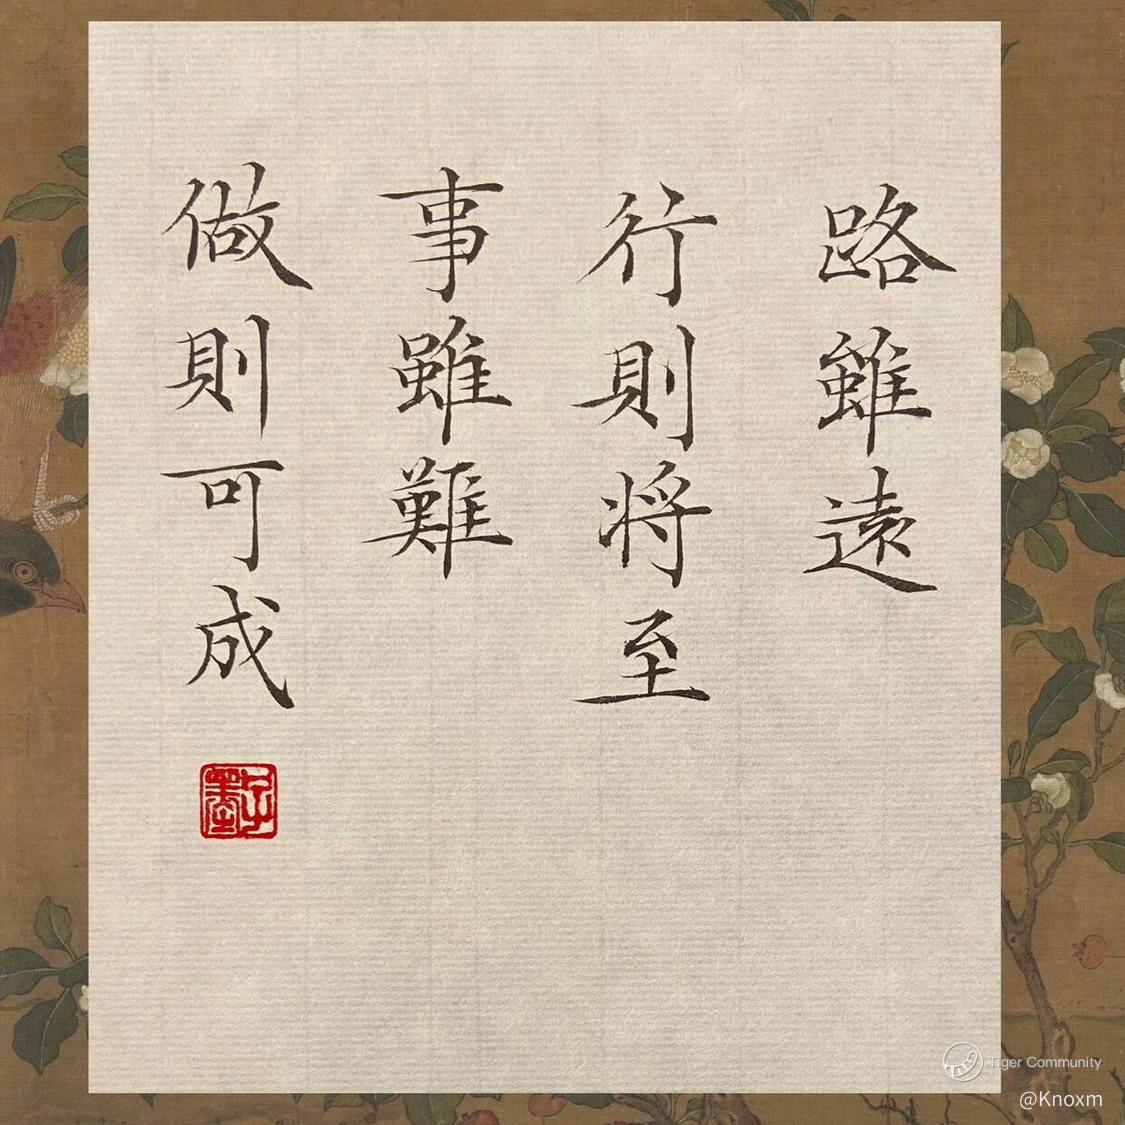 路雖遠
行則将至
事雖難
做則可成
子墨
Tiger Community
@Knoxm